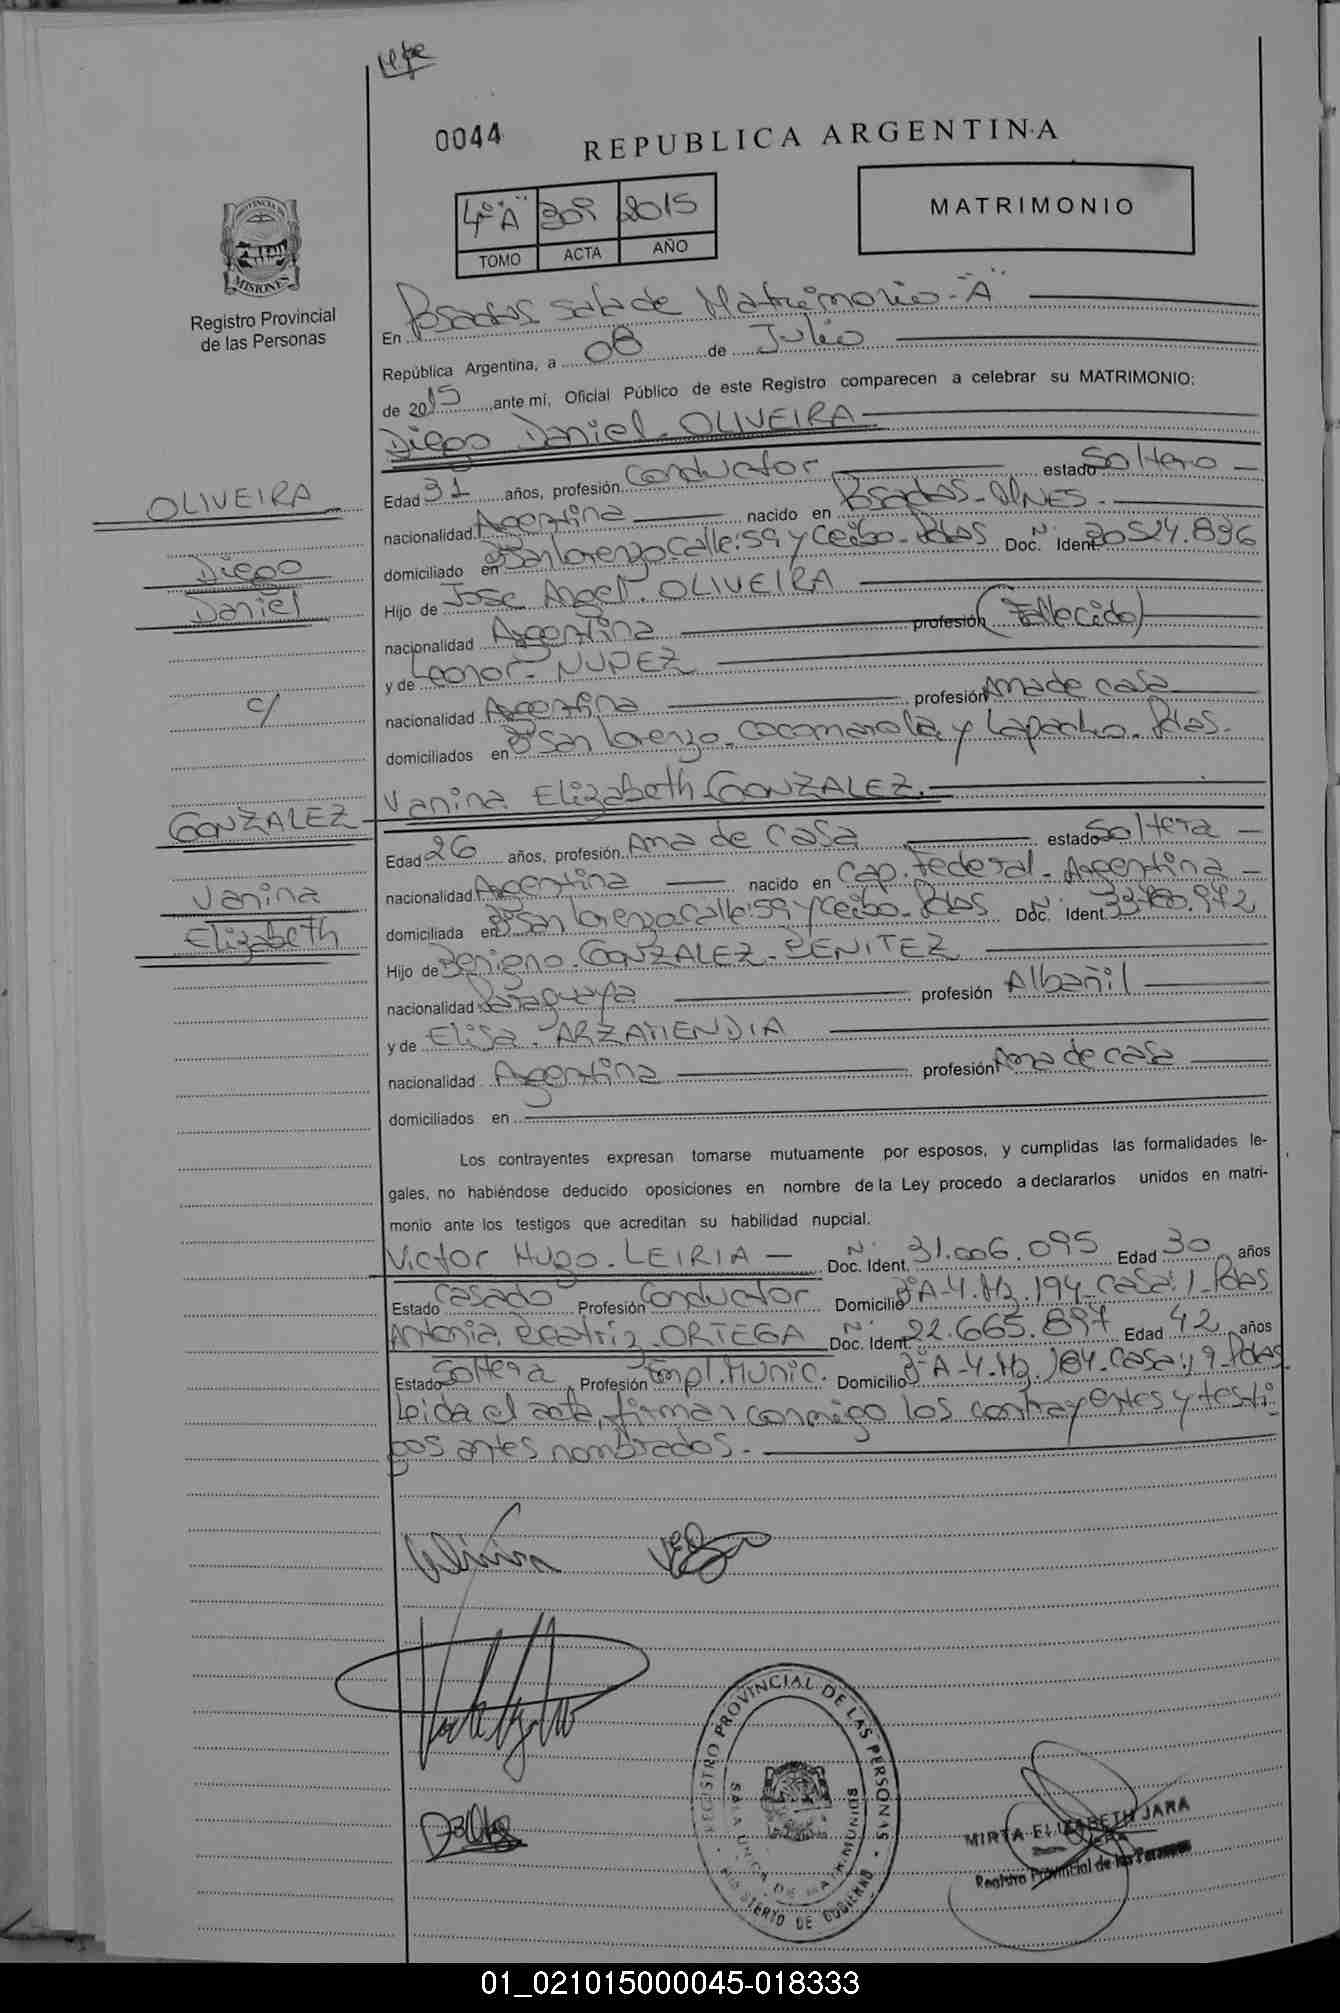 0044
REPUBLICA ARGENTINA
4º "A" 309 2015
TOMO ACTA AÑO
MATRIMONIO
PROVINCIA DE
MISIONES
Registro Provincial
de las Personas
En Posadas Sala de Matrimonio - "A"
República Argentina, a 08 de Julio
de 2015 ante mí, Oficial Público de este Registro comparecen a celebrar su MATRIMONIO:
Diego Daniel OLIVEIRA
OLIVEIRA
Diego
Daniel
c/
GONZALEZ
Vanina
Elizabeth
Edad 31 años, profesión Conductor estado Soltero
nacionalidad Argentina nacido en Posadas - Mnes.
domiciliado en Bº San Lorenzo Calle: 59 y Ceibo - Pdas Doc. Ident. Nº 30524.896
Hijo de Jose Angel OLIVEIRA
nacionalidad Argentina profesión (Fallecido)
y de Leonor NUÑEZ
nacionalidad Argentina profesión Ama de casa
domiciliados en Bº San Lorenzo - Cocomarola y Lapacho - Pdas.
Vanina Elizabeth GONZALEZ.
Edad 26 años, profesión Ama de casa estado Soltera
nacionalidad Argentina nacido en Cap. Federal - Argentina
domiciliada en Bº San Lorenzo Calle: 59 y Ceibo - Pdas Doc. Ident. Nº
Hijo de Benigno GONZALEZ - BENITEZ
nacionalidad Paraguaya profesión Albañil
y de Elisa
nacionalidad Argentina profesión Ama de casa
domiciliados en
Los contrayentes expresan tomarse mutuamente por esposos, y cumplidas las formalidades le-
gales, no habiéndose deducido oposiciones en nombre de la Ley procedo a declararlos unidos en matri-
monio ante los testigos que acreditan su habilidad nupcial.
Victor Hugo LEIRIA Doc. Ident. Nº 31.006.095 Edad 30 años
Estado Casado Profesión Conductor Domicilio Bº A-4. Mz. 194 - Casa: 1 - Pdas
Antonia Beatriz ORTEGA Doc. Ident. Nº 22.665.897 Edad 42 años
Estado Soltera Profesión Empl. Munic. Domicilio Bº A-4. Mz. 184 - Casa: 19 - Pdas
Leida el acta, firman conmigo los contrayentes y testi-
gos antes nombrados.-
REGISTRO PROVINCIAL DE LAS PERSONAS
SALA UNICA DE MATRIMONIOS
MINISTERIO DE GOBIERNO
MIRTA ELIZABETH JARA
Registro Provincial de las Personas
01_021015000045-018333